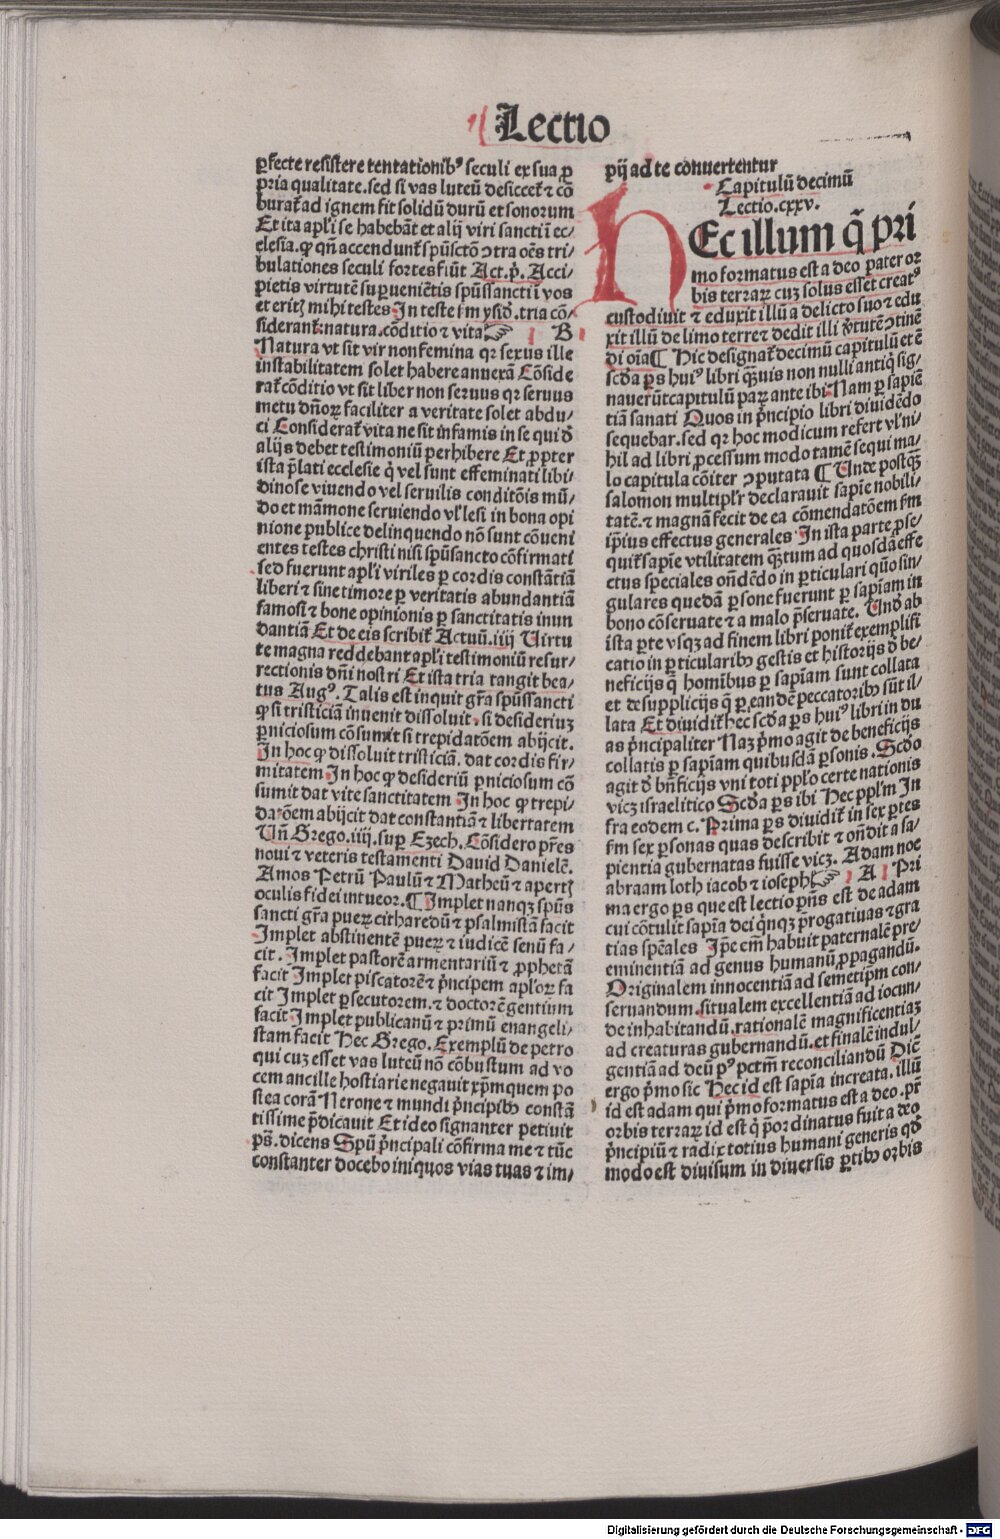 Lectio
ꝑfecte resistere tentationibꝰ seculi ex sua ꝓ
pria qualitate. sed si vas luteū desiccet̄ ⁊ cō
burat̄ ad ignem fit solidū durū et sonorum
Et ita apl̓i se habebāt et alij viri sancti ī ec/
clesia. ꝙ qn̄ accendunt̄ spūscto ꝯtra oēs tri/
bulationes seculi fortes fiūt Act. p̓. Acci/
pietis virtutē suꝑueniētis spūssancti ī vos
et erit꭭ mihi testes. In teste fm ysid̓. tria cō/
siderant̄. natura. cōditio ⁊ vita B
Natura vt sit vir non femina qꝛ sexus ille
instabilitatem solet habere annexā Cōside
rat̄ cōditio vt sit liber non seruus qꝛ seruus
metu dn̄oꝝ faciliter a veritate solet abdu/
ci Considerat̄ vita ne sit infamis in se qui d̓
alijs debet testimoniū perhibere Et ꝓpter
ista p̄lati ecclesie q̇ vel sunt effeminati libi/
dinose viuendo vel seruilis conditōis mū/
do et māmone seruiendo vl̓ lesi in bona opi
nione publice delinquendo nō sunt cōueni
entes testes christi nisi spūsancto cōfirmati
sed fuerunt apl̓i viriles ꝑ cordis constātiā
liberi ⁊ sine timore ꝑ veritatis abundantiā
famosi ⁊ bone opinionis ꝑ sanctitatis inun
dantiā Et de eis scribit̄ Actuū. iiij Virtu
te magna reddebant apl̓i testimoniū resur/
rectionis dn̄i nostri Et ista tria tangit bea/
tus Augꝰ. Talis est inquit gr̄a spūssancti
ꝙ si tristiciā inuenit dissoluit. si desideriuꝫ
ꝑniciosum cōsumit si trepidatōem abijcit.
In hoc ꝙ dissoluit tristiciā. dat cordis fir/
mitatem In hoc ꝙ desideriū ꝑniciosum cō
sumit dat vite sanctitatem In hoc ꝙ trepi/
datōem abijcit dat constantiā ⁊ libertatem
Vn̄ Grego. iiij. suꝑ Ezech. Cōsidero pr̄es
noui ⁊ veteris testamenti Dauid Danielē.
Amos Petrū Paulū ⁊ Matheū ⁊ apert꭭
oculis fidei intueor. ¶ Implet nanqꝫ spūs
sancti gr̄a pueꝝ citharedū ⁊ psalmistā facit
Implet abstinentē pueꝝ ⁊ iudicē senū fa/
cit. Implet pastorē armentariū ⁊ ꝓphetā
facit Implet piscatorē ⁊ p̓ncipem apl̓oꝝ fa
cit Implet ꝑsecutorem. ⁊ doctorē gentium
facit Implet publicanū ⁊ primū euangeli/
stam facit Hec Grego. Exemplū de petro
qui cuꝫ esset vas luteū nō cōbustum ad vo
cem ancille hostiarie negauit xp̄m quem po
stea corā Nerone ⁊ mundi p̓ncipibꝫ constā
tissime p̄dicauit Et ideo signanter petiuit
ps̄. dicens Spū p̓ncipali cōfirma me ⁊ tūc
constanter docebo iniquos vias tuas ⁊ im/
pij ad te conuertentur
Capitulū decimū
Lectio. cxxv.
HEc illum q̄ pri
mo formatus est a deo pater or
bis terraꝝ cuꝫ solus esset creatꝰ
custodiuit ⁊ eduxit illū a delicto suo ⁊ edu
xit illū de limo terre ⁊ dedit illi v̓tutē ꝯtinē
di oīa ¶ Hic designat̄ decimū capitulū et ē
scd̓a ꝑs huiꝰ libri qꝫuis non nulli antiq̇ sig/
nauerūt capitulū paꝝ ante ibi. Nam ꝑ sapiē
tiā sanati Quos in p̓ncipio libri diuidēdo
sequebar. sed qꝛ hoc modicum refert vl̓ ni/
hil ad libri ꝓcessum modo tamē sequi ma/
lo capitula cōiter ꝯputata ¶ Unde postqꝫ
salomon multipl̓r declarauit sapiē nobili/
tatē. ⁊ magnā fecit de ea cōmendatōem fm
ip̄ius effectus generales In ista parte ꝓse/
quit̄ sapīe vtilitatem qꝫtum ad quosdā effe
ctus speciales on̄dēdo in ꝑticulari quō sin/
gulares quedā ꝑsone fuerunt ꝑ sapīam in
bono cōseruate ⁊ a malo p̄seruate. Und̓ ab
ista ꝑte vsqꝫ ad finem libri ponit̄ exemplifi
catio in ꝑticularibꝫ gestis et historijs d̓ be/
neficijs q̄ hominibus ꝑ sapīam sunt collata
et de supplicijs q̄ ꝑ eandē peccatoribꝫ sūt il/
lata Et diuidit̄ hec scd̓a ꝑs huiꝰ libri in du
as p̓ncipaliter Naꝫ p̓mo agit de beneficijs
collatis ꝑ sapīam quibusdā ꝑsonis. Scd̓o
agit d̓ bn̄ficijs vni toti ppl̓o certe nationis
vicꝫ israelitico Scd̓a ꝑs ibi Hec ppl̓m In
fra eodem c. Prima ꝑs diuidit̄ in sex ꝑtes
fm sex ꝑsonas quas describit ⁊ on̄dit a sa/
pientia gubernatas fuisse vicꝫ. Adam noe
abraam loth iacob ⁊ ioseph A Pri
ma ergo ꝑs que est lectio pn̄s est de adam
cui cōtulit sapīa dei q̇nqꝫ p̓rogatiuas ⁊ gra
tias spēales Ip̄e em̄ habuit paternalē pre/
eminentiā ad genus humanū ꝓpagandū.
Originalem innocentiā ad semetip̄m con/
seruandum. situalem excellentiā ad iocun/
de inhabitandū. rationalē magnificentiaꝫ
ad creaturas gubernandū. et finalē indul/
gentiā ad deū pꝰ pctm̄ reconciliandū Dic̄
ergo p̓mo sic Hec id est sapīa increata. illū
id est adam qui p̓mo formatus est a deo. pr̄
orbis terraꝝ id est q̇ p̄ordinatus fuit a deo
p̓ncipiū ⁊ radix totius humani generis qd̓
modo est diuisum in diuersis ꝑtibꝫ orbis
Digitalisierung gefördert durch die Deutsche Forschungsgemeinschaft - DFG